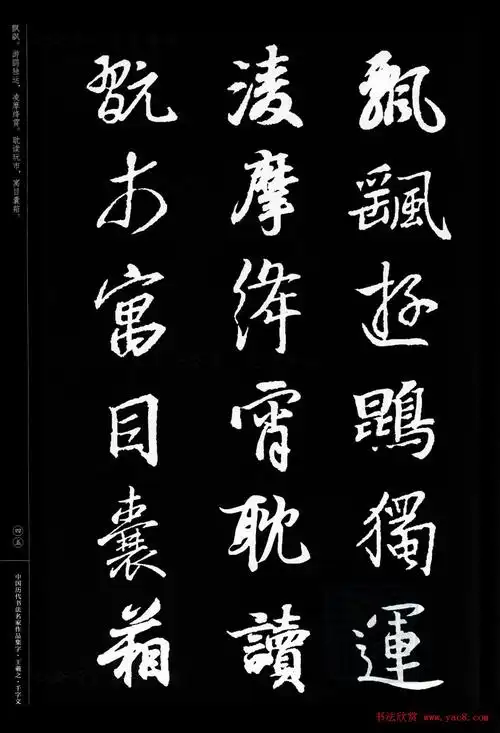 飄颻遊鵾獨運
淩摩絳霄耽讀
翫市寓目囊箱
飘飖。游鹍独运，凌摩绛霄。耽读玩市，寓目囊箱。
四五
中国历代书法名家作品集字·王羲之·千字文
书法欣赏 www.yac8.com